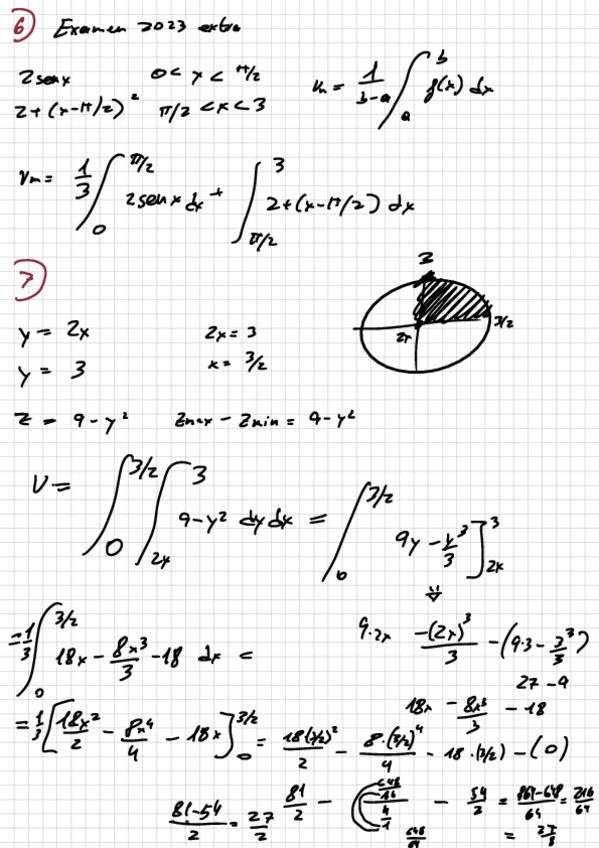 6) Examen 2023 extra
2senx 0 < x < π/2
2+(x-π/2)² π/2 < x < 3
Vm = 1/(b-a) ∫_a^b f(x) dx
Vm = 1/3 ∫_0^{π/2} 2senx dx + ∫_{π/2}^3 2+(x-π/2) dx
7)
y = 2x 2x = 3
y = 3 x = 3/2
3/2
2x
z = 9 - y² Zmax - Zmin = 9 - y²
V = ∫_0^{3/2} ∫_{2x}^3 9-y² dy dx = ∫_0^{3/2} 9y - y³/3 ]_{2x}^3
⇓
9·2x -(2x)³/3 - (9·3 - 3³/3)
27 - 9
= 1/3 ∫_0^{3/2} 18x - 8x³/3 - 18 dx =
18x - 8x³/3 - 18
= 1/3 [ 18x²/2 - 8x⁴/4 - 18x ]_0^{3/2} = 18(3/2)²/2 - 8·(3/2)⁴/4 - 18·(3/2) - (0)
81-54/2 = 27/2 81/2 - 648/16 / 4/1 - 54/2 = 864-648/64 = 216/64
648/64 = 27/8